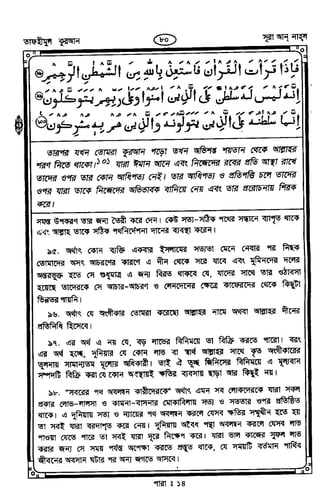 তাফহীমুল কুরআন
৮০
সূরা আন্ নাহ্‌ল
فَإِذَا قَرَأْتَ الْقُرْآنَ فَاسْتَعِذْ بِاللَّهِ مِنَ الشَّيْطَنِ الرَّجِيْمِ
إِنَّهٗ لَيْسَ لَهٗ سُلْطَنٌ عَلَى الَّذِيْنَ اٰمَنُوْا وَعَلٰى رَبِّهِمْ يَتَوَكَّلُوْنَ
اِنَّمَا سُلْطَنُهٗ عَلَى الَّذِيْنَ يَتَوَلَّوْنَهٗ وَالَّذِيْنَ هُمْ بِهٖ مُشْرِكُوْنَ
তারপর যখন তোমরা কুরআন পড়ো তখন অভিশপ্ত শয়তান থেকে আল্লাহর
শরণ নিতে থাকো।১০১ যারা ঈমান আনে এবং নিজেদের রবের প্রতি আস্থা রাখে
তাদের ওপর তার কোন আধিপত্য নেই। তার আধিপত্য ও প্রতিপত্তি চলে তাদের
ওপর যারা তাকে নিজেদের অভিভাবক বানিয়ে নেয় এবং তার প্ররোচনায় শিরক
করে।
সমস্ত উপকরণ তার জন্য তৈরী করে দেন। কেউ সত্য-সঠিক পথের সন্ধানে ব্যাপৃত থাকে
এবং আল্লাহ তাকে সঠিক পথনির্দেশনা দানের ব্যবস্থা করেন।
৯৫. অর্থাৎ কোন ব্যক্তি একবার ইসলামের সত্যতা মেনে নেবার পর নিছক
তোমাদের অসৎ আচরণের কারণে এ দীন থেকে সরে যাবে এবং মুমিনদের দলের
অন্তরভুক্ত হতে সে শুধুমাত্র এ জন্য বিরত থাকবে যে, যাদের সাথে তার ওঠাবসা
হয়েছে তাদেরকে সে আচার-আচরণ ও লেনদেনের ক্ষেত্রে কাফেরদের থেকে কিছুটা
ভিন্নতর পায়নি।
৯৬. অর্থাৎ যে অংগীকার তোমরা করেছো আল্লাহর নামে অথবা আল্লাহর দীনের
প্রতিনিধি হিসেবে।
৯৭. এর অর্থ এ নয় যে, বড় লাভের বিনিময়ে তা বিক্রি করতে পারো। বরং
এর অর্থ হচ্ছে, দুনিয়ার যে কোন লাভ বা স্বার্থ আল্লাহর সাথে কৃত অংগীকারের
তুলনায় সামান্যতম মূল্যের অধিকারী। তাই ঐ তুচ্ছ জিনিসের বিনিময়ে এ মূল্যবান
সম্পদটি বিক্রি করা যে কোন অবস্থায়ই ক্ষতির ব্যবসায় ছাড়া আর কিছুই নয়।
৯৮. "সবরের পথ অবলম্বন কারীদেরকে" অর্থাৎ এমন সব লোকদেরকে যারা সকল
প্রকার লোভ-লালসা ও কামনা-বাসনার মোকাবিলায় সত্য ও সততার ওপর প্রতিষ্ঠিত
থাকে। এ দুনিয়ায় সত্য ও ন্যায়ের পথ অবলম্বন করলে যেসব ক্ষতির সম্মুখীন হতে হয়
তা সবই যারা বরদাশ্ত করে নেয়। দুনিয়ায় অবৈধ পন্থা অবলম্বন করলে যেসব লাভ
পাওয়া যেতে পারে তা সবই যারা দূরে নিক্ষেপ করে। যারা ভাল কাজের সুফল লাভ
করার জন্য সে সময় পর্যন্ত অপেক্ষা করতে প্রস্তুত থাকে, যে সময়টি বর্তমান পার্থিব
জীবনের অবসান ঘটার পর অন্য জগতে আসবে।
পারা : ১৪